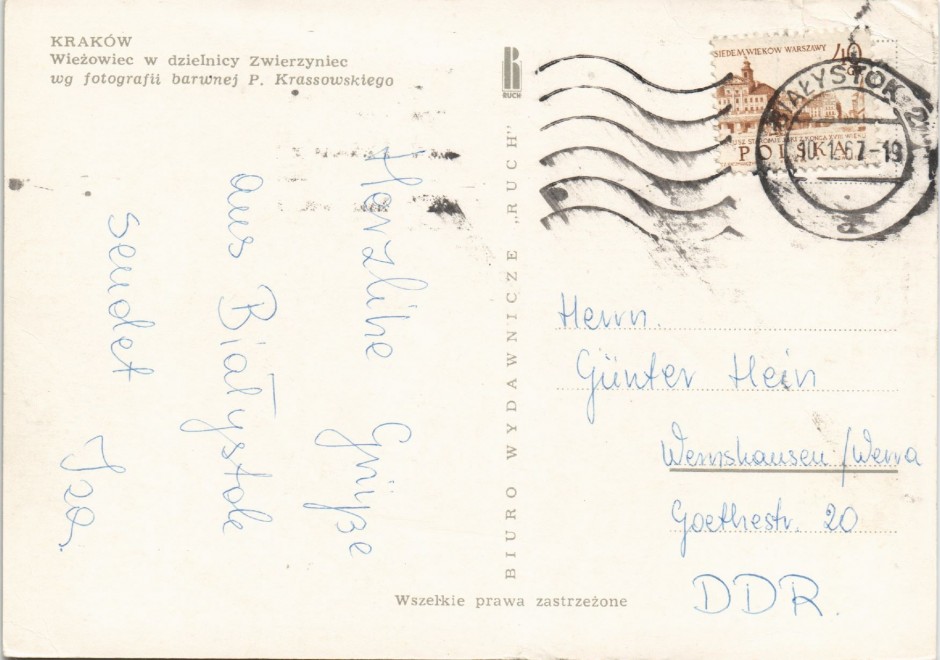 KRAKÓW
Wieżowiec w dzielnicy Zwierzyniec
wg fotografii barwnej P. Krassowskiego
RUCH
SIEDEM WIEKÓW WARSZAWY 40
POLSKA
BIAŁYSTOK 2
10.1.67-19
a
BIURO WYDAWNICZE „RUCH"
Herzlihe Grüße
aus Białystok
sendet Iza.
Herrn.
Günter Hein
Wernshausen/Werra
Goethestr. 20
DDR.
Wszelkie prawa zastrzeżone